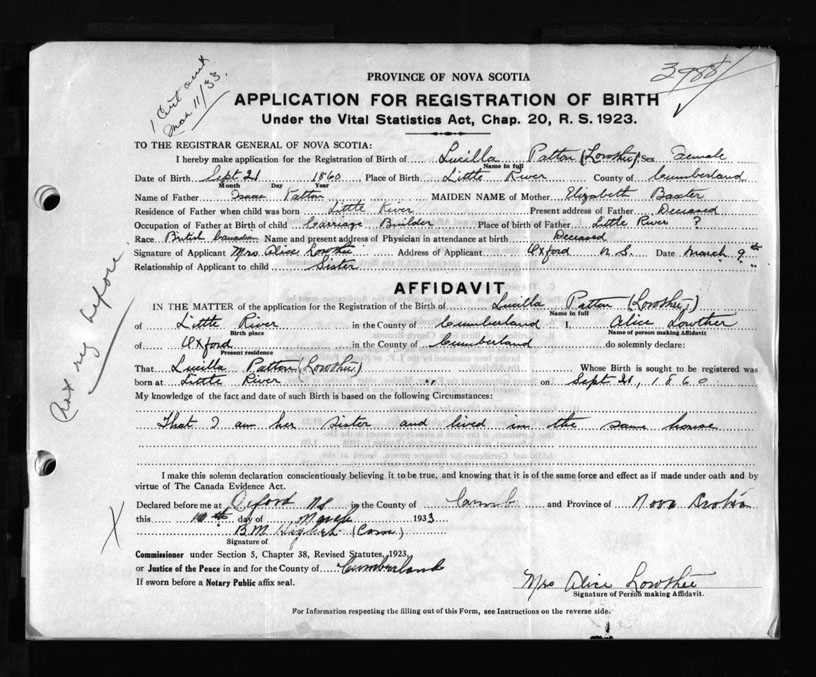 1 Cert sent
Mar 11/33.
3988
PROVINCE OF NOVA SCOTIA
APPLICATION FOR REGISTRATION OF BIRTH
Under the Vital Statistics Act, Chap. 20, R. S. 1923.
TO THE REGISTRAR GENERAL OF NOVA SCOTIA:
I hereby make application for the Registration of Birth of Lucilla Patton (Lowther) Sex Female
Name in full
Date of Birth Sept 21 1860 Place of Birth Little River County of Cumberland
Month Day Year
Name of Father Patton MAIDEN NAME of Mother Elizabeth Baxter
Residence of Father when child was born Little River Present address of Father Deceased
Occupation of Father at Birth of child Carriage Builder Place of birth of Father Little River ?
Race British Canadian Name and present address of Physician in attendance at birth Deceased
Signature of Applicant Mrs Alice Lowther Address of Applicant Oxford N.S. Date March 9th
Relationship of Applicant to child Sister
AFFIDAVIT
IN THE MATTER of the application for the Registration of the Birth of Lucilla Patton (Lowther)
Name in full
of Little River in the County of Cumberland I, Alice Lowther
Birth place Name of person making Affidavit
of Oxford in the County of Cumberland do solemnly declare:
Present residence
That Lucilla Patton (Lowther) Whose Birth is sought to be registered was
born at Little River " on Sept 21, 1860
My knowledge of the fact and date of such Birth is based on the following Circumstances:
That I am her sister and lived in the same house
Not reg before
I make this solemn declaration conscientiously believing it to be true, and knowing that it is of the same force and effect as if made under oath and by
virtue of The Canada Evidence Act.
Declared before me at Oxford NS in the County of Cumb and Province of Nova Scotia
this 10th day of March 1933
X
B.M. (Com)
Signature of
Commissioner under Section 5, Chapter 38, Revised Statutes, 1923
or Justice of the Peace in and for the County of Cumberland
If sworn before a Notary Public affix seal.
Mrs Alice Lowther
Signature of Person making Affidavit.
For Information respecting the filling out of this Form, see Instructions on the reverse side.